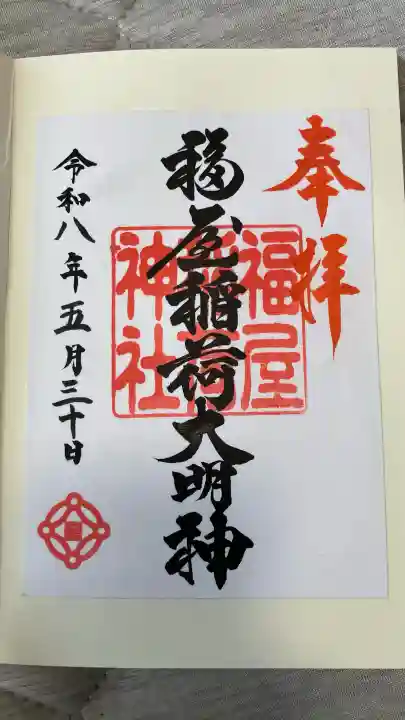 奉拝
福屋稲荷大明神
福屋
稲荷
神社
令和八年五月三十日